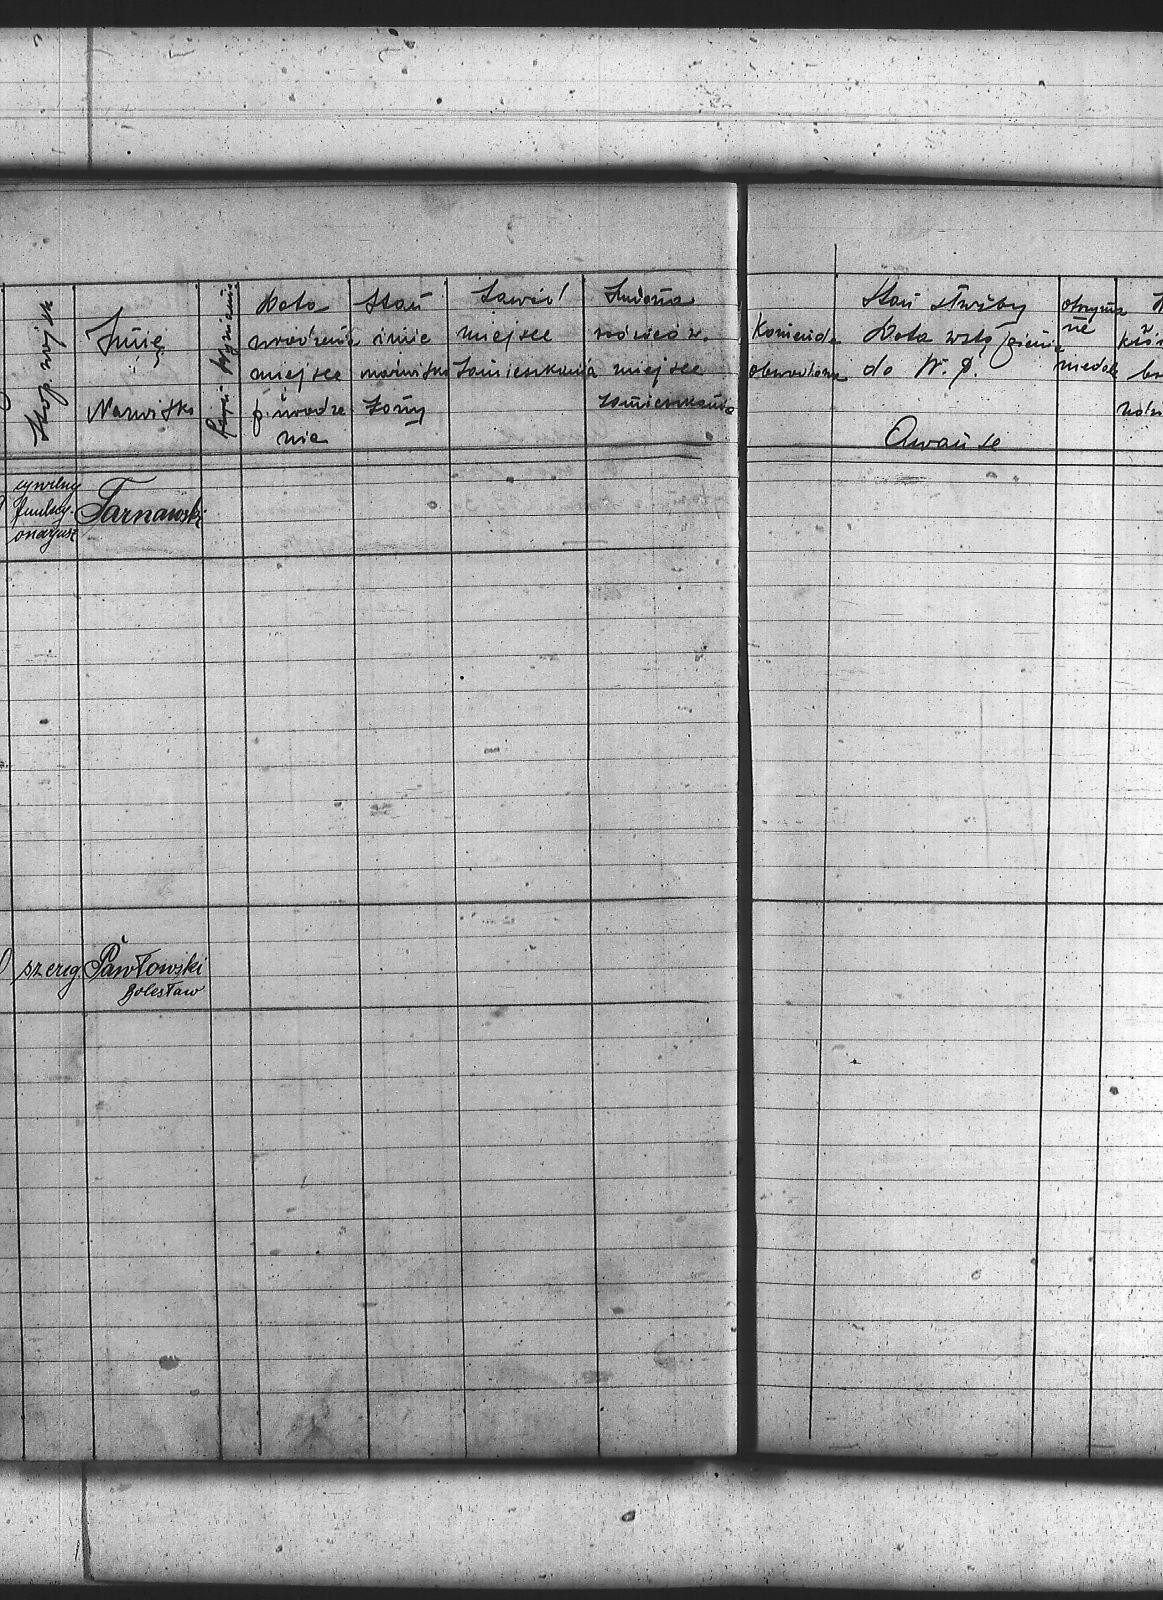 Stop. wojsk
Imię
i
Nazwisko
Wyznanie
Data
urodzenia
miejsce
p. urodze
nia
Stan
imię
nazwisko
żony
Zawód
miejsce
Zamieszkania
Imiona
rodziców.
miejsce
zamieszkania
Komenda
obwodowa
Stan służby
Data wstąpienia
do W. P.
Awanse
otrzyma
ne
medale
cywilny
funkcy-
onarjusz
Tarnawski
szereg.
Pawłowski
Bolesław